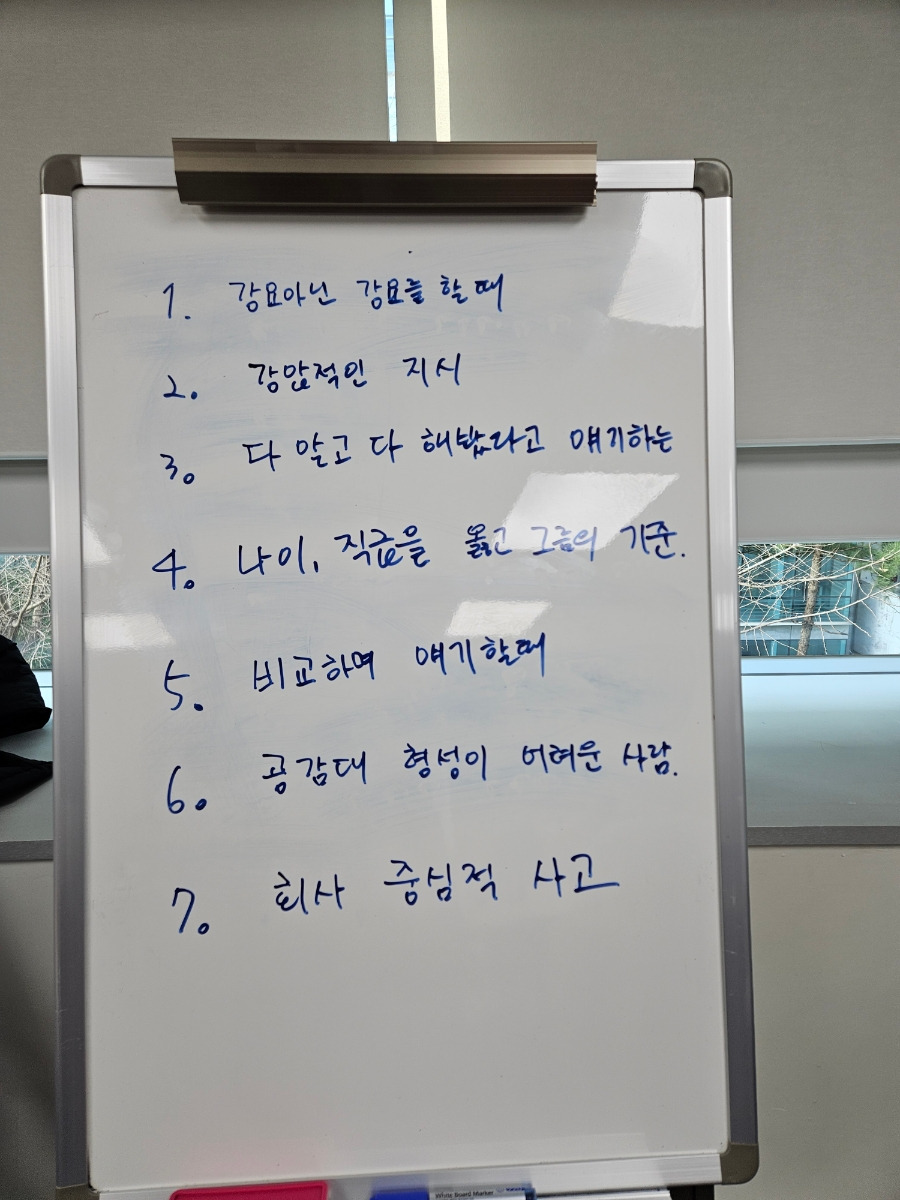 1. 강요아닌 강요를 할때
2. 강압적인 지시
3. 다 알고 다 해봤다고 얘기하는
4. 나이, 직급을 옳고 그름의 기준.
5. 비교하며 얘기할때
6. 공감대 형성이 어려운 사람.
7. 회사 중심적 사고
White Board Marker